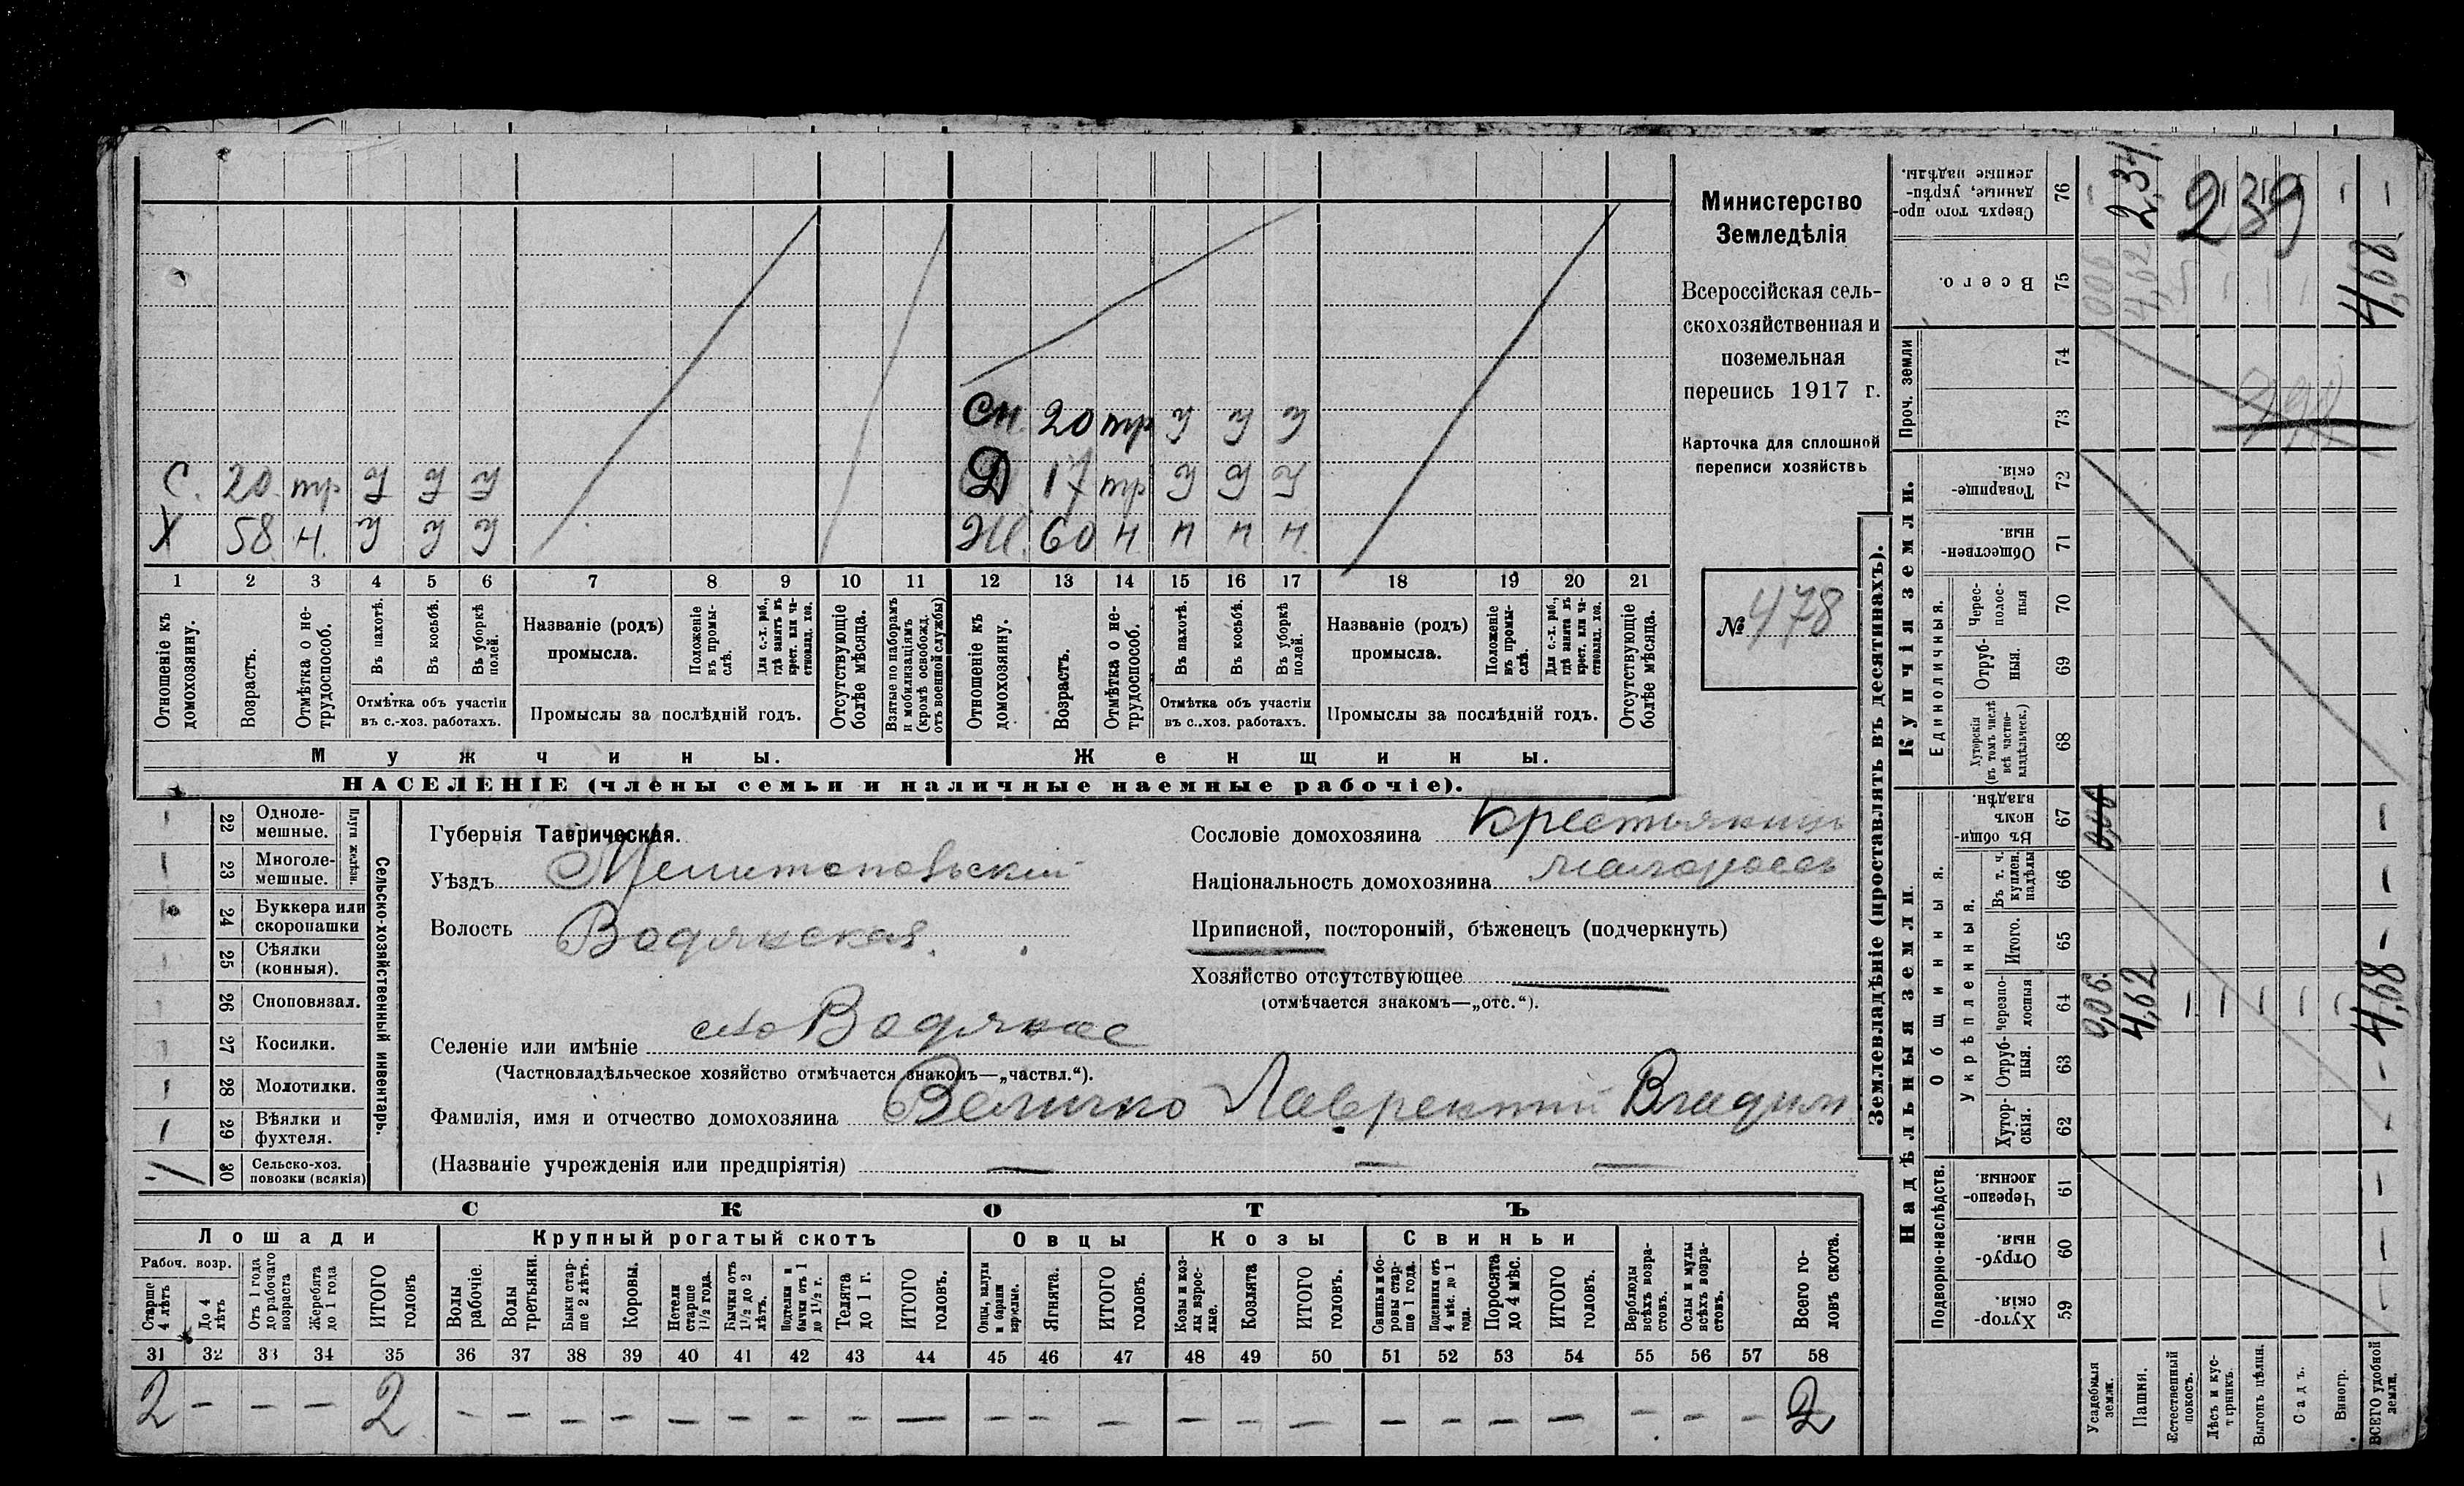 С. 20 тр У У У
Х 58 н. У У У
Сн. 20 тр У У У
Д 17 тр У У У
Ж. 60 н н н н
1 2 3 4 5 6 7 8 9 10 11 12 13 14 15 16 17 18 19 20 21
Отношеніе къ домохозяину.
Возрастъ.
Отмѣтка о не-трудоспособ.
Въ пахотѣ.
Въ косьбѣ.
Въ уборкѣ полей.
Отмѣтка объ участіи
въ с.-хоз. работахъ.
Названіе (родъ)
промысла.
Положеніе въ промы-слѣ.
Для с.-х. раб., гдѣ занятъ въ крест. или ча-стновлад. хоз.
Промыслы за послѣдній годъ.
Отсутствующіе болѣе мѣсяца.
Взятые по наборамъ и мобилизаціямъ (кромѣ освобожд. отъ военной службы)
Отношеніе къ домохозяину.
Возрастъ.
Отмѣтка о не-трудоспособ.
Въ пахотѣ.
Въ косьбѣ.
Въ уборкѣ полей.
Отмѣтка объ участіи
въ с.-хоз. работахъ.
Названіе (родъ)
промысла.
Положеніе въ промы-слѣ.
Для с.-х. раб., гдѣ занята въ крест. или ча-стновлад. хоз.
Промыслы за послѣдній годъ.
Отсутствующіе болѣе мѣсяца.
Мужчины. Женщины.
НАСЕЛЕНІЕ (члены семьи и наличные наемные рабочіе).
Министерство
Земледѣлія
Всероссійская сель-
скохозяйственная и
поземельная
перепись 1917 г.
Карточка для сплошной
переписи хозяйствъ
№ 478
22 Одноле-мешные.
23 Многоле-мешные.
Плуги желѣзн.
24 Буккера или скоропашки
25 Сѣялки (конныя).
26 Сноповязал.
27 Косилки.
28 Молотилки.
1 29 Вѣялки и фухтеля.
30 Сельско-хоз. повозки (всякія)
Сельско-хозяйственный инвентарь.
Губернія Таврическая.
Уѣздъ Мелитопольскій
Волость Водянская.
Сословіе домохозяина Крестьянинъ
Національность домохозяина малороссъ
Приписной, посторонній, бѣженецъ (подчеркнуть)
Хозяйство отсутствующее —
(отмѣчается знакомъ—„отс.“).
Селеніе или имѣніе село Водяное
(Частновладѣльческое хозяйство отмѣчается знакомъ—„частвл.“).
Фамилія, имя и отчество домохозяина Величко Лаврентій Владим
(Названіе учрежденія или предпріятія) — — —
СКОТЪ
Лошади Крупный рогатый скотъ Овцы Козы Свиньи
Рабоч. возр.
Старше 4 лѣтъ
До 4 лѣтъ
Отъ 1 года до рабочаго возраста
Жеребята до 1 года
ИТОГО головъ
Волы рабочіе.
Волы третьяки.
Быки стар-ше 2 лѣтъ.
Коровы.
Нетели старше 1½ года.
Бычки отъ 1½ до 2 лѣтъ.
Подтелки и бычки отъ 1 до 1½ г.
Телята до 1 г.
ИТОГО головъ.
Овцы, валухи и бараны взрослые.
Ягнята.
ИТОГО головъ.
Козы и коз-лы взрос-лые.
Козлята
ИТОГО головъ.
Свиньи и бо-ровы стар-ше 1 года.
Подсвинки отъ 4 мѣс. до 1 года.
Поросята до 4 мѣс.
ИТОГО головъ.
Верблюды всѣхъ возра-стовъ.
Ослы и мулы всѣхъ возра-стовъ.
Всего го-ловъ скота.
31 32 33 34 35 36 37 38 39 40 41 42 43 44 45 46 47 48 49 50 51 52 53 54 55 56 57 58
2 — — — 2 — — — — — — — — — — — — — — — — — — — — — — 2
Землевладѣніе (проставлять въ десятинахъ).
Сверхъ того про-данные, укрѣп-ленные надѣлы. 76 2,34
239
Всего. 75 0,06 4,62 4,68
Проч. земли 74 73
Купчія земли.
Товарище-скія. 72
Обществен-ныя. 71
Единоличныя.
Черес-полос-ныя 70
Отруб-ныя. 69
Хуторскія (въ томъ числѣ всѣ частно-владѣльческ.) 68
Надѣльныя земли.
Общинныя.
Въ общин-номъ владѣн. 67 0,06
Укрѣпленныя.
Въ т. ч. куплен. надѣлы 66
Итого. 65
Черезпо-лосныя 64 0,06 4,62 4,68
Отруб-ныя. 63
Хутор-скія. 62
Подворно-наслѣдств.
Черезпо-лосныя 61
Отруб-ныя. 60
Хутор-скія 59
Усадебная земля.
Пашня.
Естественный покосъ.
Лѣсъ и кус-тарникъ.
Выгонъ цѣлин.
Садъ.
Виногр.
ВСЕГО удобной земли.